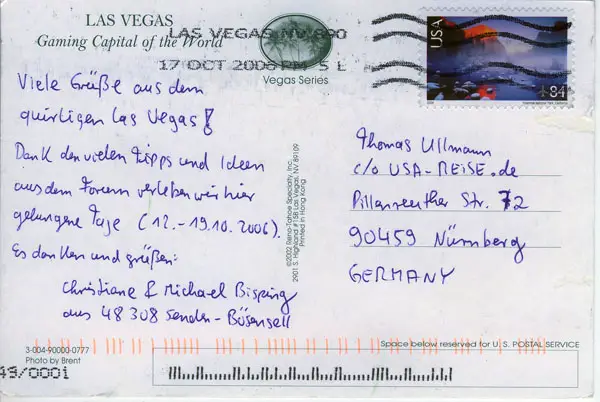 LAS VEGAS
Gaming Capital of the World
LAS VEGAS NV 890
17 OCT 2006 PM 5 L
Vegas Series
USA
84
Viele Grüße aus dem
quirligen Las Vegas!
Dank den vielen Tipps und Ideen
aus dem Forum verleben wir hier
gelungene Tage (12.-19.10.2006).
Es danken und grüßen:
Christiane & Michael Bisping
aus 48308 Senden-Bösensell
©2002 Reno-Tahoe Specialty, Inc.
2901 S. Highland #15B Las Vegas, NV 89109
Printed in Hong Kong
Thomas Ullmann
c/o USA-REISE.de
Pillenreuther Str. 72
90459 Nürnberg
GERMANY
3-004-90000-0777
Photo by Brent
49/0001
Space below reserved for U.S. POSTAL SERVICE